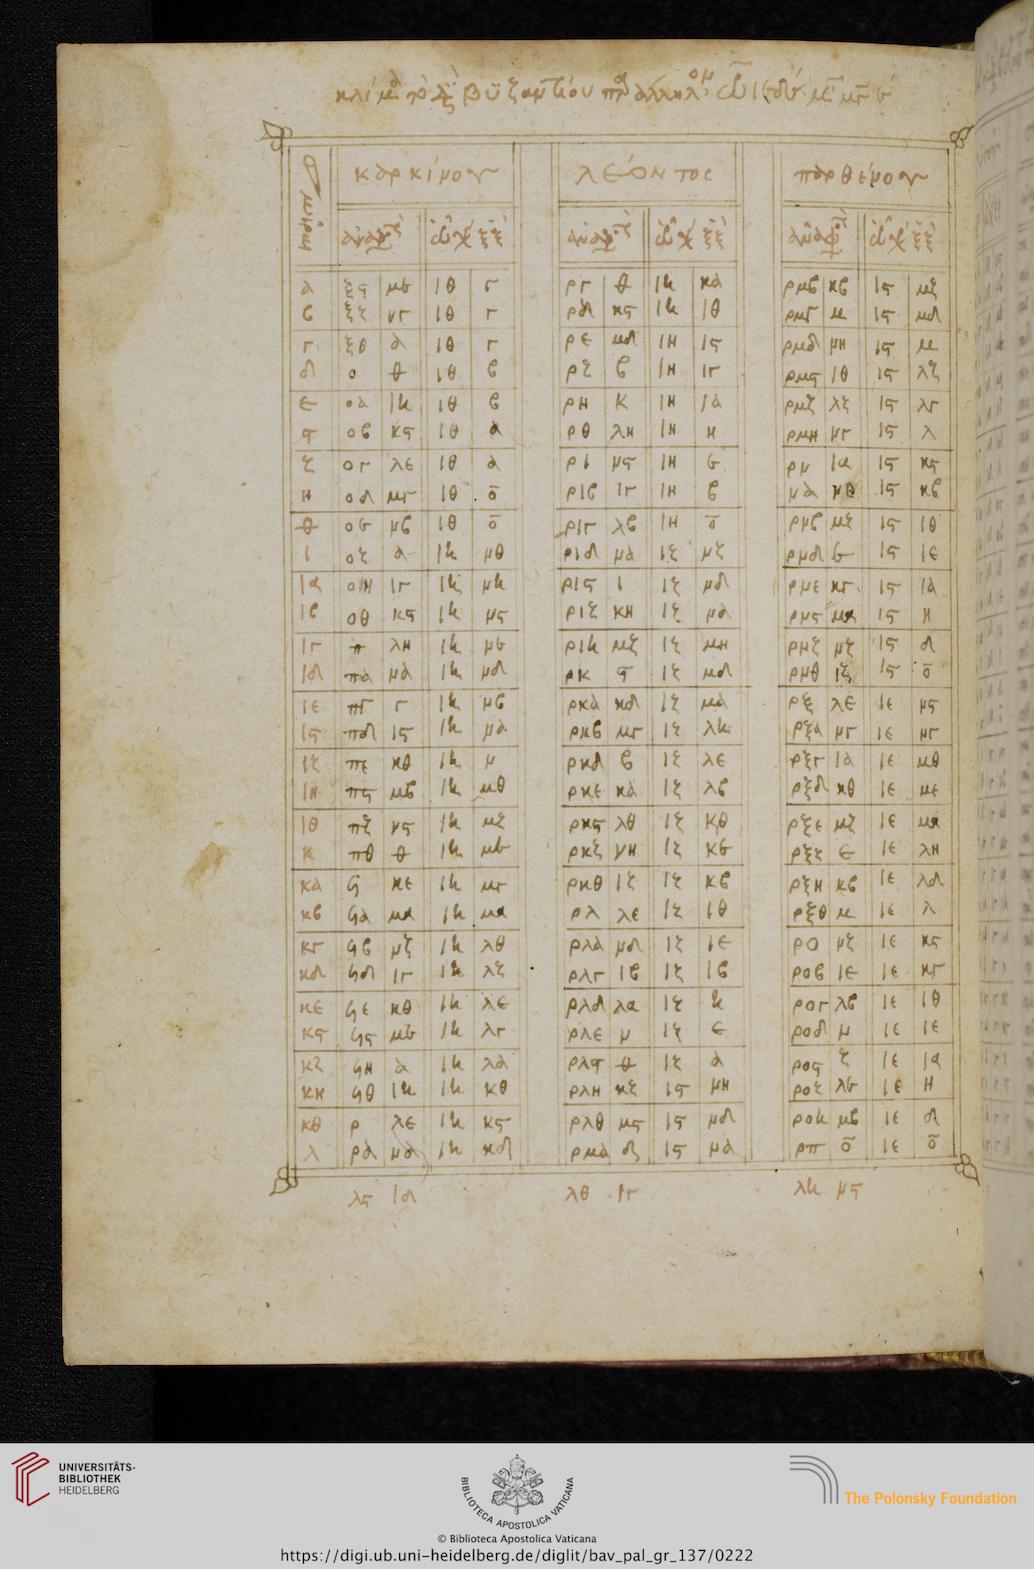 καρκίνου λέοντος παρθένου
α ξϛ μϛ ιθ γ ργ θ ιη κα ρμβ κβ ιϛ μζ
β ξζ νγ ιθ γ ρδ κϛ ιη ιθ ρμγ μ ιϛ μδ
γ ξθ α ιθ γ ρε μδ ιη ιϛ ρμδ μη ιϛ μ
δ ο θ ιθ β ρζ β ιη ιγ ρμϛ ιθ ιϛ λζ
ε οα ιη ιθ β ρη κ ιη ια ρμζ λζ ιϛ λγ
ϛ οβ κϛ ιθ α ρθ λη ιη η ρμη νγ ιϛ λ
ζ ογ λε ιθ α ρι νϛ ιη ϛ ρν ια ιϛ κϛ
η οδ μγ ιθ ο ριβ ιγ ιη β να κθ ιϛ κβ
θ οϛ νβ ιθ ο ριγ λβ ιη ο ρνβ μζ ιϛ ιθ
ι οζ α ιη νθ ριδ να ιζ νζ ρνδ ϛ ιϛ ιε
ια οη ιγ ιη νη ριϛ ι ιζ νδ ρνε κγ ιϛ ια
ιβ οθ κϛ ιη νϛ ριζ κη ιζ να ρνϛ μα ιϛ η
ιγ π λη ιη νϛ ριη μζ ιζ μη ρνζ νζ ιϛ δ
ιδ πα να ιη νδ ρκ ϛ ιζ μδ ρνθ ιζ ιϛ ο
ιε πγ γ ιη νβ ρκα κδ ιζ μα ρξ λε ιε νϛ
ιϛ πδ ιϛ ιη να ρκβ μγ ιζ λη ρξα νγ ιε νγ
ιζ πε κθ ιη ν ρκδ β ιζ λε ρξγ ια ιε μθ
ιη πϛ μβ ιη μθ ρκε κα ιζ λβ ρξδ κθ ιε με
ιθ πζ νϛ ιη μζ ρκϛ λθ ιζ κθ ρξε μζ ιε μα
κ πθ θ ιη μϛ ρκζ νη ιζ κϛ ρξζ ε ιε λη
κα ϙ κε ιη μγ ρκθ ιζ ιζ κβ ρξη κβ ιε λδ
κβ ϙα μα ιη μα ρλ λε ιζ ιθ ρξθ μ ιε λ
κγ ϙβ νζ ιη λθ ρλα νδ ιζ ιε ρο νζ ιε κϛ
κδ ϙδ ιγ ιη λζ ρλγ ιβ ιζ ιβ ροβ ιε ιε κγ
κε ϙε κθ ιη λε ρλδ λα ιζ η ρογ λβ ιε ιθ
κϛ ϙϛ μϛ ιη λγ ρλε ν ιζ ε ροδ ν ιε ιε
κζ ϙη α ιη λα ρλϛ θ ιζ α ροϛ ζ ιε ια
κη ϙθ ιη ιη κθ ρλη κζ ιϛ νη ροζ λϛ ιε η
κθ ρ λε ιη κϛ ρλθ μϛ ιϛ νδ ροη μβ ιε δ
λ ρα να ιη κδ ρμα δ ιϛ να ρπ ο ιε ο
λϛ ιδ λθ ιγ λη μϛ
UNIVERSITÄTS-
BIBLIOTHEK
HEIDELBERG
BIBLIOTECA APOSTOLICA VATICANA
The Polonsky Foundation
© Biblioteca Apostolica Vaticana
https://digi.ub.uni-heidelberg.de/diglit/bav_pal_gr_137/0222